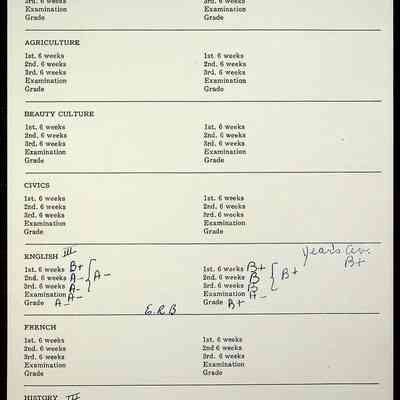 3rd. 6 weeks 3rd. 6 weeks
Examination Examination
Grade Grade
AGRICULTURE
1st. 6 weeks 1st. 6 weeks
2nd. 6 weeks 2nd. 6 weeks
3rd. 6 weeks 3rd. 6 weeks
Examination Examination
Grade Grade
BEAUTY CULTURE
1st. 6 weeks 1st. 6 weeks
2nd. 6 weeks 2nd. 6 weeks
3rd. 6 weeks 3rd. 6 weeks
Examination Examination
Grade Grade
CIVICS
1st. 6 weeks 1st. 6 weeks
2nd. 6 weeks 2nd. 6 weeks
3rd. 6 weeks 3rd. 6 weeks
Examination Examination
Grade Grade
ENGLISH III Year's Av.
B+
1st. 6 weeks B+ 1st. 6 weeks B+
2nd. 6 weeks A- A- 2nd. 6 weeks B B+
3rd. 6 weeks A- 3rd. 6 weeks B
Examination A- Examination A-
Grade A- Grade B+
E.R.B
FRENCH
1st. 6 weeks 1st. 6 weeks
2nd. 6 weeks 2nd 6 weeks
3rd. 6 weeks 3rd. 6 weeks
Examination Examination
Grade Grade
HISTORY III